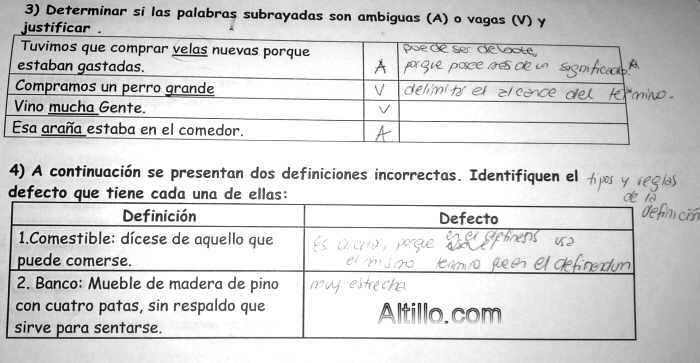 3) Determinar si las palabras subrayadas son ambiguas (A) o vagas (V) y
justificar .
Tuvimos que comprar velas nuevas porque
estaban gastadas.
A
puede ser de bote,
porque posee más de un significado.
Compramos un perro grande
V
delimitar el alcance del término.
Vino mucha Gente.
V
Esa araña estaba en el comedor.
A
4) A continuación se presentan dos definiciones incorrectas. Identifiquen el tipos y reglas
defecto que tiene cada una de ellas:
de la
definición
Definición
Defecto
1.Comestible: dícese de aquello que
puede comerse.
Es circular, porque usa
el mismo termino el definiendum
2. Banco: Mueble de madera de pino
con cuatro patas, sin respaldo que
sirve para sentarse.
muy estrecha
Altillo.com